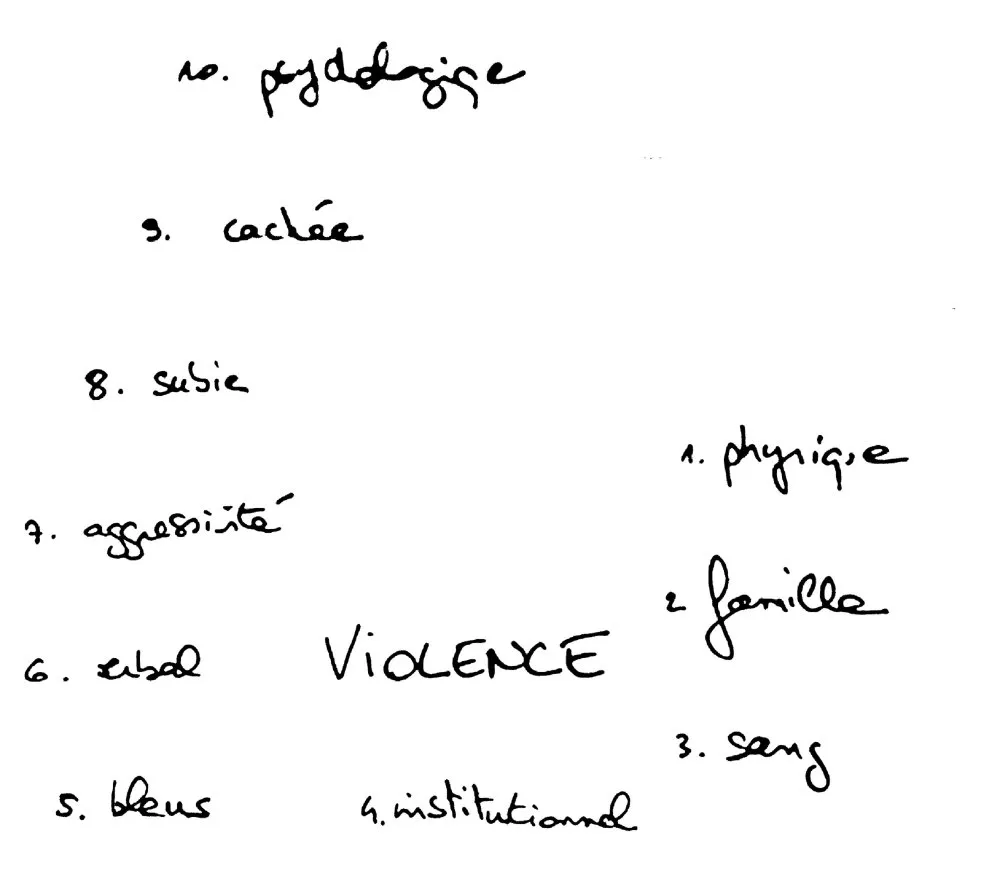 10. psychologique
9. cachée
8. subie
1. physique
7. aggressivité
2 famille
6. verbal
VIOLENCE
3. sang
5. bleus
4. institutionnel